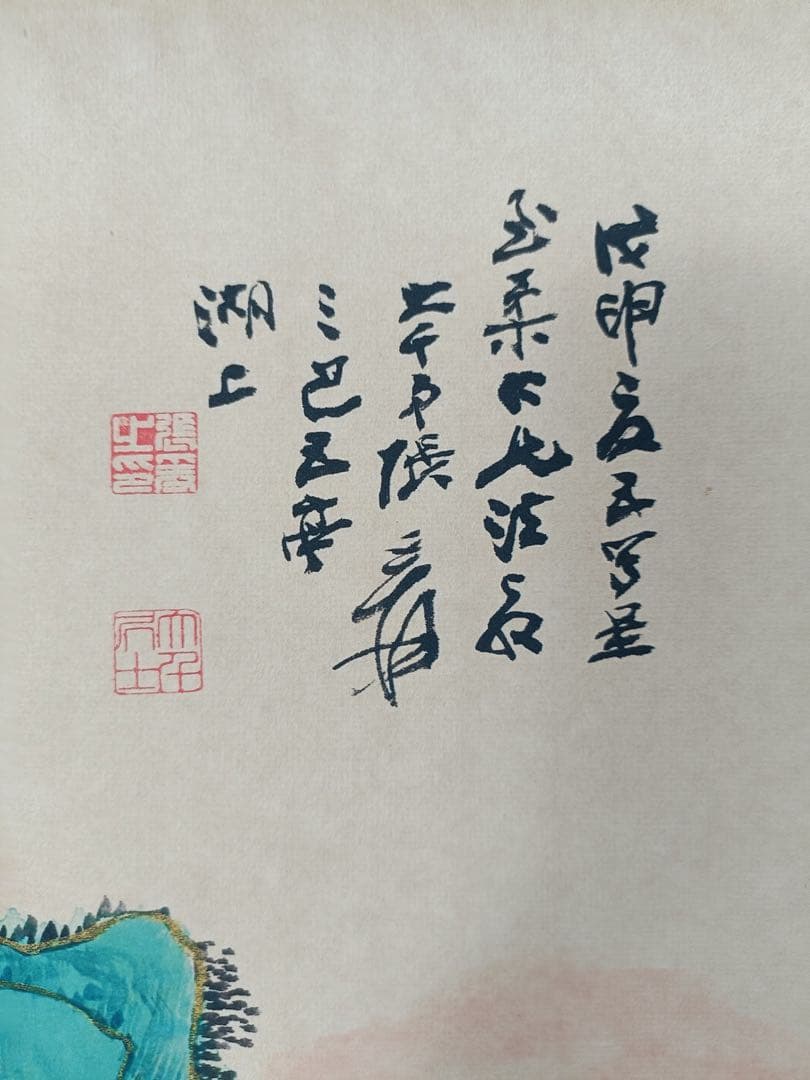 戊申夏五寫呈
至柔大兄法教
大千弟張爰
三巴五亭
湖上
張爰之印
大千居士